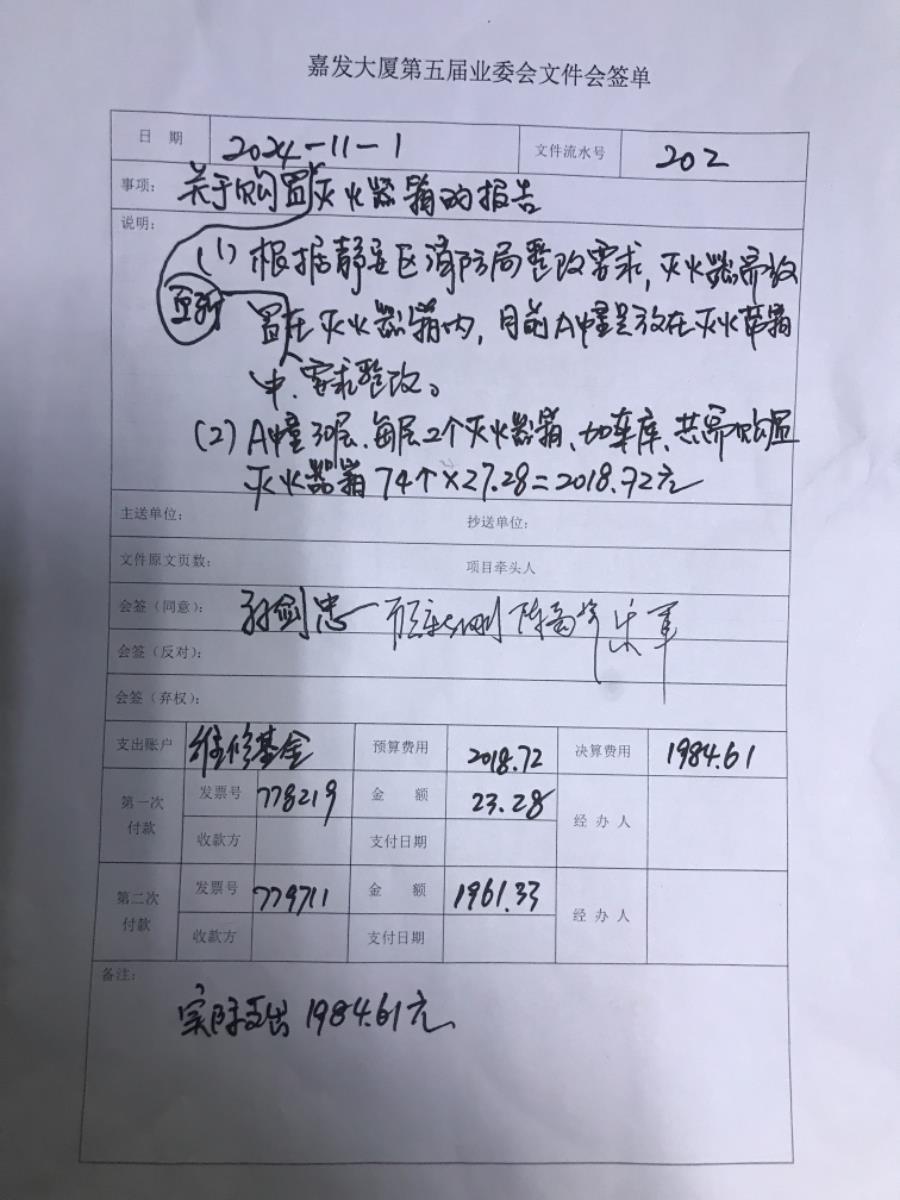 嘉发大厦第五届业委会文件会签单
日 期 2024-11-1 文件流水号 202
事项: 关于购置灭火器箱的报告
说明:
(1) 根据静安区消防局整改要求,灭火器需放
置在灭火器箱内,目前A幢是放在灭火带箱
中、要求整改。
(2) A幢30层、每层2个灭火器箱、加车库、共需购置
灭火器箱 74个×27.28=2018.72元
主送单位: 抄送单位:
文件原文页数: 项目牵头人
会签(同意): 孙剑忠
会签(反对):
会签(弃权):
支出账户 维修基金 预算费用 2018.72 决算费用 1984.61
第一次付款 发票号 778219 金 额 23.28 经 办 人
收款方 支付日期
第二次付款 发票号 779711 金 额 1961.33 经 办 人
收款方 支付日期
备注:
实际支出 1984.61元